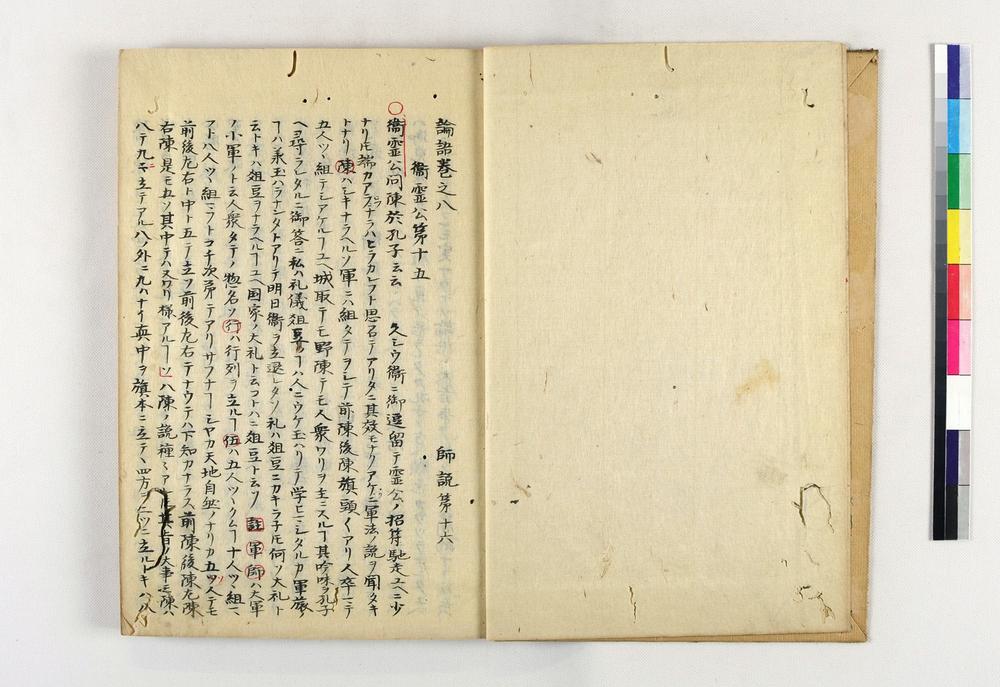 論語巻之八
衞霊公第十五　師説第十六
衞霊公問陳於孔子云云　久シウ衞ニ御逗留テ霊公ノ招待馳走ユヘニ少
ナリ𪜈端カアズナラハヒラカレフト思召テアリタニ其效モナクノアケニ軍法ノ説ヲ聞タキ
トナリ陳ハシキナラヘルソ軍ニハ組タテヲシテ前陳後陳旗頭〱アリ人卒一テ
五人ツヽ組テシアケルヿユヘ城取テモ野陳テモ人衆ワリヲ主ニスルヿ其吟味ヲ孔子
ヘヲ尋ラレタルニ御答ニ私ハ礼儀俎豆ノヿハ人ニウケ玉ハリテ学ヒモシタルカ軍旅ノ
ヿハ承玉ハラナンタトアリテ明日衞ヲ立退レタソ礼ハ俎豆ニカキラ子𪜈何ソ大礼ト
云トキハ俎豆ヲナラヘルヿユヘ国家ノ大礼ト云フコトハニ俎豆ト云ソ　註軍師ハ大軍
ノ小軍ノト云人衆タテノ惣名ソ行ハ行列ヲ立ルヿ伍ハ五人ツヽクムヿ十人ツヽ組ニ
フト八人ツヽ組ニフトコチ次第テアリサフナヿシヤカ天地自然ノナリカ五ツ人テモ
前後左右ト中ト五テ立フ前後左右テナウテハ下知カナラス前陳後陳左陳
右陳是モ五ソ其中テハスワリ様アルヿソ八陳ノ説種〻アレ𪜈其音ノ大事モ陳ハ
八テ九ニ立テアル八ノ外ニ九ハナイ真中ヲ旗本ニ立テヽ四方ヲ二ツニ立ルトキハ